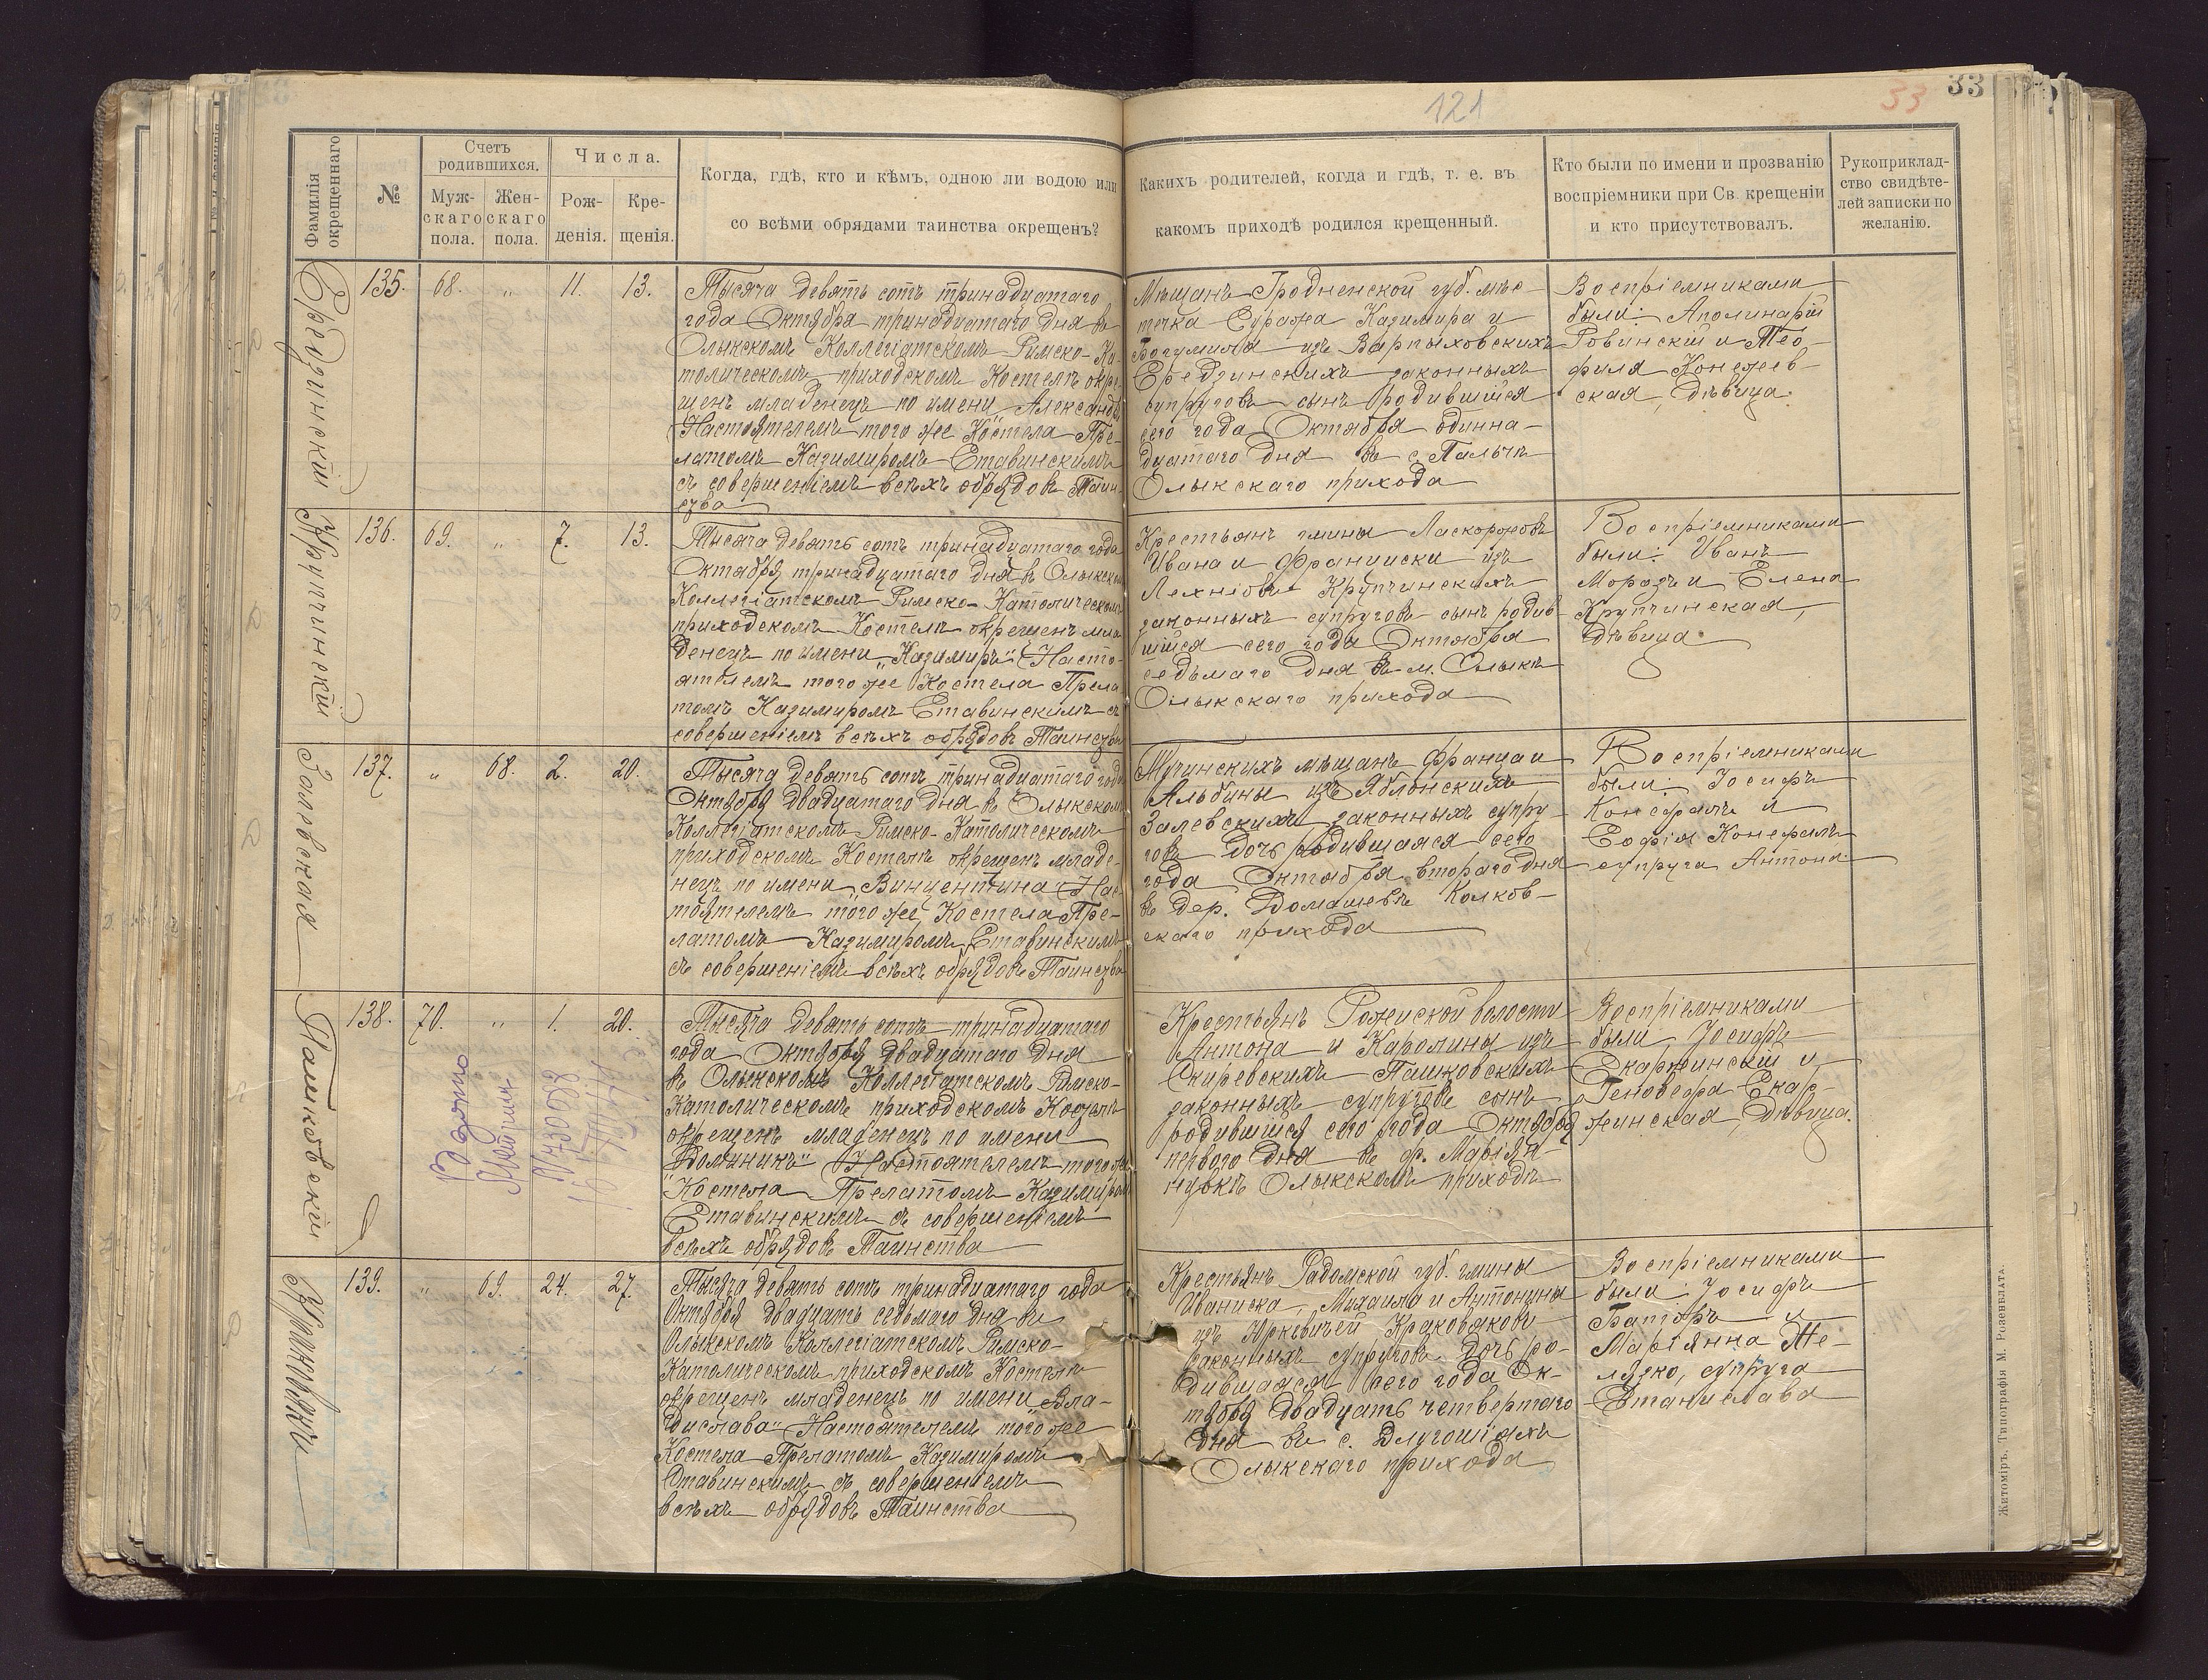 121
33
33
Фамилія окрещеннаго
№
Счетъ родившихся.
Муж-
скаго
пола.
Жен-
скаго
пола.
Числа.
Рож-
денія.
Кре-
щенія.
Когда, гдѣ, кто и кѣмъ, одною ли водою или
со всѣми обрядами таинства окрещенъ?
Какихъ родителей, когда и гдѣ, т. е. въ
какомъ приходѣ родился крещенный.
Кто были по имени и прозванію
воспріемники при Св. крещеніи
и кто присутствовалъ.
Рукоприклад-
ство свидѣте-
лей записки по
желанію.
135.
68.
„
11.
13.
Тысяча девять сотъ тринадцатаго
года Октября тринадцатаго дня въ
Олыкскомъ Коллегіатскомъ Римско-Ка
толическомъ приходскомъ Костелѣ окре
щенъ младенецъ по имени „Александръ
Настоятелемъ того же Костела Пре-
латомъ Казимиромъ Ставинскимъ
съ совершеніемъ всѣхъ обрядовъ Таин-
ства
Мѣщанъ Гродненской губ. мѣс-
течка Суража Казимира и
Богумила изъ Варпыховскихъ
Средзинскихъ законныхъ
супруговъ сынъ родившійся
сего года Октября одинна-
дцатаго дня въ с. Пальче
Олыкскаго прихода
Воспріемниками
были: Аполинарій
Ровинскій и Тео-
филя
ская, дѣвица.
Крупчинскій
136.
69.
„
7.
13.
Тысяча девять сотъ тринадцатаго года
Октября тринадцатаго дня въ Олыкском
Коллегіатскомъ Римско-Католическомъ
приходскомъ Костелѣ окрещенъ мла
денецъ по имени „Казимиръ“ Насто-
ятелемъ того же Костела Прела
томъ Казимиромъ Ставинскимъ съ
совершеніемъ всѣхъ обрядовъ Таинства
Крестьянъ гмины Ласкоржовъ
Ивана и Франциски изъ
Лехнюовъ Крупчинскихъ
законныхъ супруговъ сынъ родив
шійся сего года Октября
седьмаго дня въ м. Олыкѣ
Олыкскаго прихода
Воспріемниками
были: Иванъ
Морозъ и Елена
Крупчинская,
дѣвица.
137.
„
68.
2.
20.
Тысяча девять сотъ тринадцатаго года
Октября двадцатаго дня въ Олыкском
Коллегіатскомъ Римско-Католическомъ
приходскомъ Костелѣ окрещенъ младе-
нецъ по имени „Винцентина“ Нас
тоятелемъ того же Костела Пре-
латомъ Казимиромъ Ставинскимъ
съ совершеніемъ всѣхъ обрядовъ Таинства
мѣщанъ Франца и
Альбины изъ Яблонскихъ
Залевскихъ законныхъ супру-
говъ дочь родившаяся сего
года Октября втораго дня
въ дер. Домашевѣ Колков-
скаго прихода
Воспріемниками
были: Іосифъ
и
Софія
супруга Антона
Пашковскій
138.
70.
„
1.
20.
Выдано
Метрика
№ 30098
Тысяча девять сотъ тринадцатаго
года Октября двадцатаго дня
въ Олыкскомъ Коллегіатскомъ Римско-
Католическомъ приходскомъ Костелѣ
окрещенъ младенецъ по имени
„Доминикъ“ Настоятелемъ того же
Костела Прелатомъ Казимиром
Ставинскимъ съ совершеніемъ
всѣхъ обрядовъ Таинства
Крестьянъ Рожиской волости
Антона и Каролины изъ
Скиревскихъ Пашковскихъ
законныхъ супруговъ сынъ
родившійся сего года Октября
перваго дня въ ф. Маріян-
нувкѣ Олыкскомъ приходѣ
Воспріемниками
были Іосифъ
Скаржинскій и
Геновефа Скар-
жинская, дѣвица.
139.
„
69.
24.
27.
Тысяча девять сотъ тринадцатаго года
Октября двадцать седьмого дня въ
Олыкскомъ Коллегіатскомъ Римско-
Католическомъ приходскомъ Костелѣ
окрещенъ младенецъ по имени „Вла-
дислава“ Настоятелемъ того же
Костела Прелатомъ Казимиромъ
Ставинскимъ съ совершеніемъ
всѣхъ обрядовъ Таинства
Крестьянъ Радомской губ. гмины
Иваниска, Михаила и Антонины
изъ Юркевичей Краковяковъ
законныхъ супруговъ дочь ро-
дившаяся сего года Ок-
тября двадцать четвертаго
дня въ с. Длугошіяхъ
Олыкскаго прихода
Воспріемниками
были: Іосифъ
Баторъ и
Маріянна Те-
лязко, супруга
Станислава
Житоміръ. Типографія М. Розенблата.